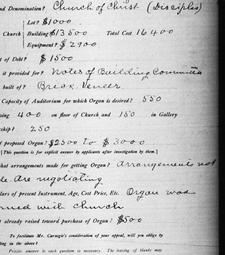 nd Denomination? Church of Christ (Disciples)
Lot? $1000
Church Building? $13500 Total Cost 16400
Equipment? $2900
t of Debt? $1500
t provided for? Notes of Building Committee
built of? Brick Veneer
Capacity of Auditorium for which Organ is desired? 550
ing 400 on floor of Church and 150 in Gallery
ship? 250
f proposed Organ? $2500 to $3000
[This question is for explicit answer by applicants after investigation by them.]
hat arrangements made for getting Organ? Arrangements not
de. Are negotiating
lars of present Instrument, Age, Cost Price, Etc. Organ was
rned with Church
t already raised toward purchase of Organ? $500
To facilitate Mr. Carnegie's consideration of your appeal, will you oblig
ling in the above?
Precise answer to each question is necessary. The leaving of blanks may